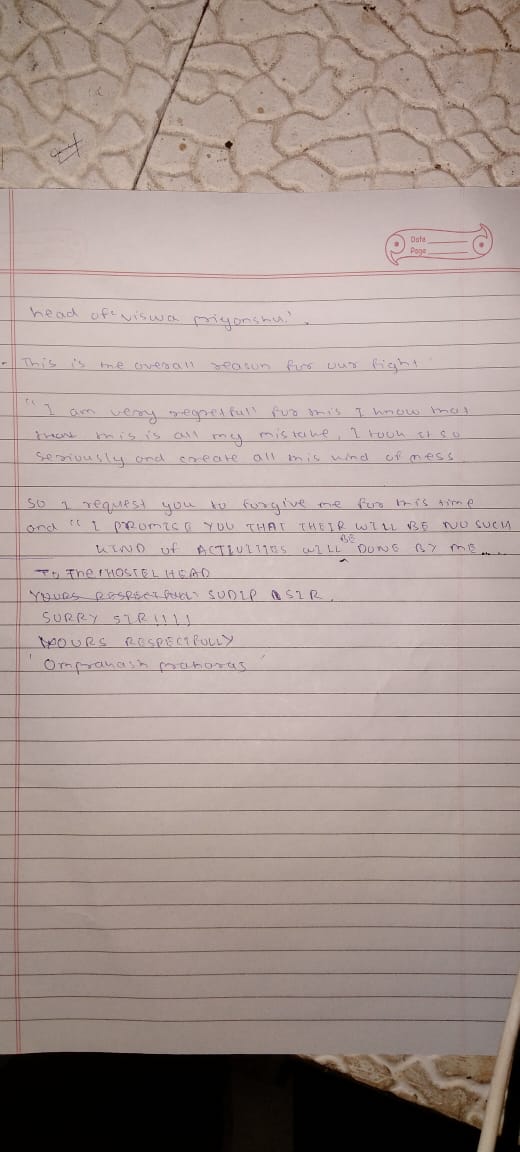 Date
Page
head of "viswa priyanshu".
- This is the overall reason for our fight
"I am very regretfull for this I know that
that this is all my mistake, I took it so
seriously and create all this kind of mess
so I request you to forgive me for this time
and "I PROMISE YOU THAT THEIR WILL BE NO SUCH
KIND of ACTIVITIES WILL BE DONE BY ME.....
To The HOSTEL HEAD
YOURS RESPECTFULL SUDIP SIR.
SURRY SIR!!!!
YOURS RESPECTFULLY
'Omprakash praharaj'